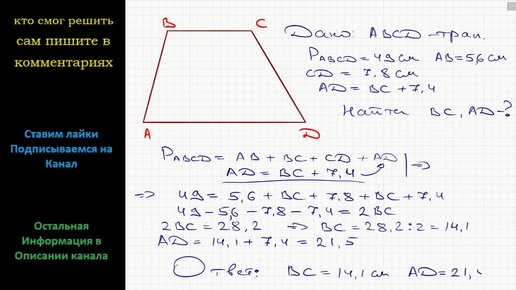 кто смог решить
сам пишите в
комментариях
Ставим лайки
Подписываемся на
Канал
Остальная
Информация в
Описании канала
B
C
A
D
Дано: ABCD – трап.
PABCD = 49 см AB = 5,6 см
CD = 7,8 см
AD = BC + 7,4
Найти BC, AD – ?
PABCD = AB + BC + CD + AD
AD = BC + 7,4 | ⇒
⇒ 49 = 5,6 + BC + 7,8 + BC + 7,4
49 – 5,6 – 7,8 – 7,4 = 2BC
2BC = 28,2 ⇒ BC = 28,2 : 2 = 14,1
AD = 14,1 + 7,4 = 21,5
Ответ: BC = 14,1 см AD = 21,